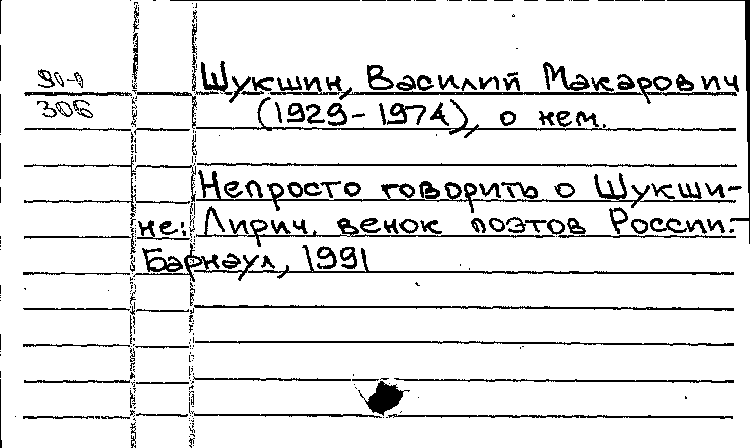 90-0
306
Шукшин, Василий Макарович
(1929-1974), о нем.
Непросто говорить о Шукши-
не: Лирич. венок поэтов России.-
Барнаул, 1991